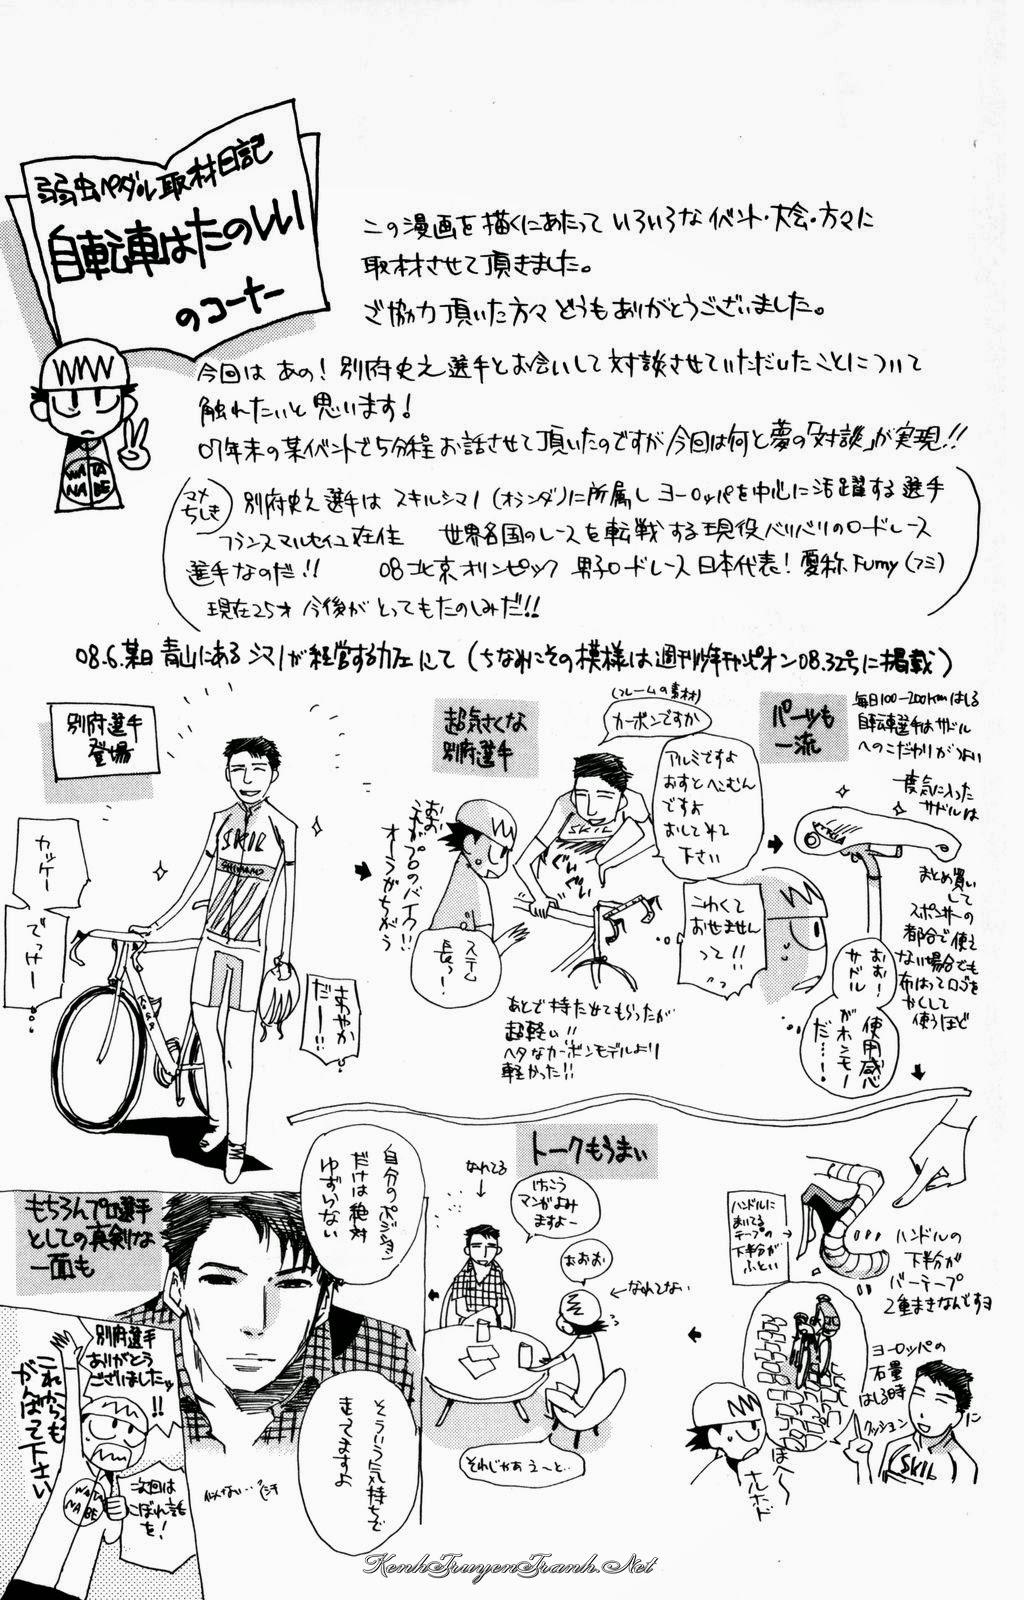 弱虫ペダル取材日記
自転車はたのしい
のコーナー
この漫画を描くにあたっていろいろなイベント・大会・方々に
取材させて頂きました。
ご協力頂いた方々どうもありがとうございました。
今回はあの!別府史之選手とお会いして対談させていただいたことについて
触れたいと思います!
07年末の某イベントで5分程お話させて頂いたのですが今回は何と夢の「対談」が実現!!
マメ
ちしき
別府史之選手はスキルシマノ(オランダ)に所属しヨーロッパを中心に活躍する選手
フランスマルセイユ在住 世界各国のレースを転戦する現役バリバリのロードレース
選手なのだ!! 08北京オリンピック 男子ロードレース日本代表!愛称Fumy(フミ)
現在25才 今後がとってもたのしみだ!!
08.6.某日 青山にあるシマノが経営するカフェにて(ちなみにその模様は週刊少年チャンピオン08.32号に掲載)
別府選手
登場
カッケー
でっけー
SKIL
SHIMANO
さわやか
だー!!
超気さくな
別府選手
(フレームの素材)
カーボンですか
アルミですよ
おすとへこむん
ですよ
おしてみて
下さい
こわくて
おせません
って!!
おお
これがプロのバイク!!
オーラがちがう
SKIL
ステム
長っ!
あとで持たせてもらったが
超軽い!!
ヘタなカーボンモデルより
軽かった!!
パーツも
一流
毎日100-200kmはしる
自転車選手はサドル
へのこだわりがつよい
一度気に入った
サドルは
まとめ買い
して
スポンサーの
都合で使え
ない場合でも
布はってロゴを
かくして
使うほど
おお!
サドル
使用感
がホンモノ
だ…!
ハンドルに
まいてる
テープの
下半分が
ふとい
ハンドルの
下半分が
バーテープ
2重まきなんですヨ
ヨーロッパの
石畳
はしる時
クッション
に
SKIL
ほへ〜
ナルホド
トークもうまい
なれてる
けっこう
マンガよみ
ますよー
おおお
なれてない
それじゃあえーと…
もちろんプロ選手
としての真剣な
一面も
自分のポジション
だけは絶対
ゆずらない
そういう気持ちで
走ってますよ
似てない…
別府選手
ありがとう
ございましたッ
!!
これからも
がんばって下さい
WATA
NABE
次回は
こぼれ話
を!
KenhTruyenTranh.Net